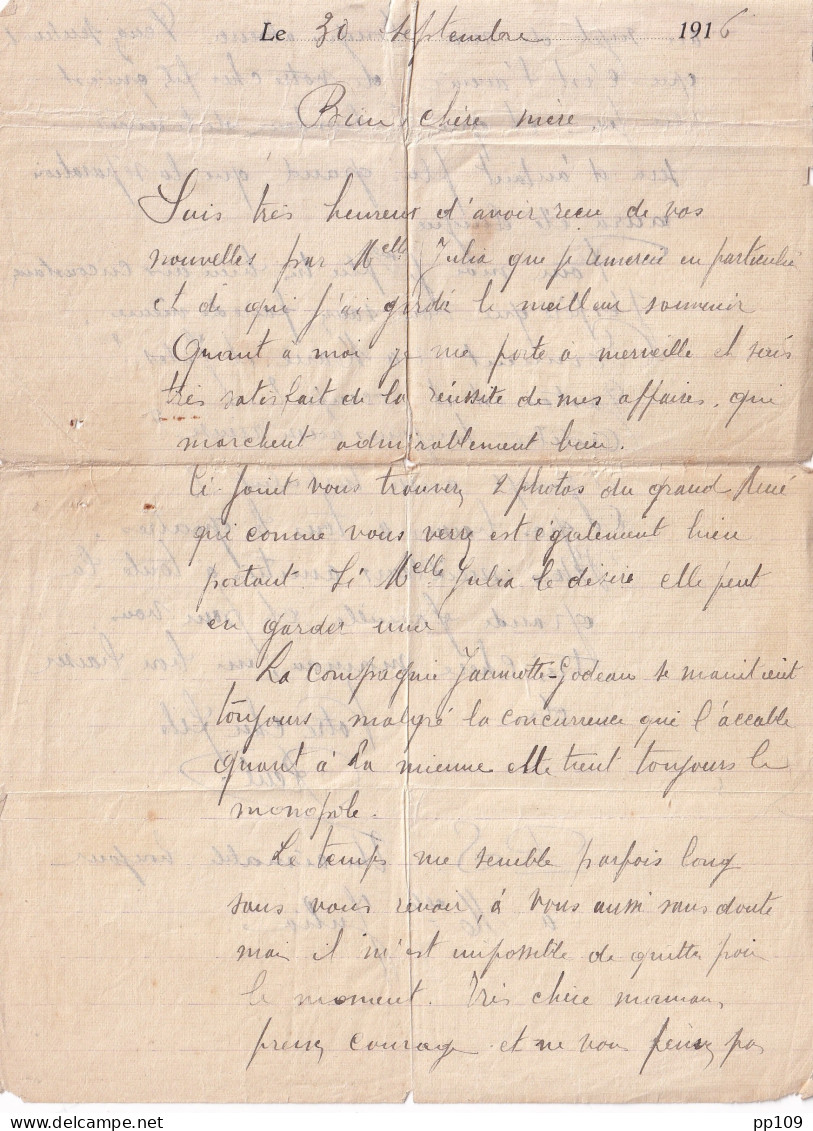 Le 30 septembre 1916
Bien chère mère,
Suis très heureux d'avoir reçu de vos
nouvelles par Melle Julia que je remercie en particulier
et de qui j'ai gardé le meilleur souvenir
Quant à moi je me porte à merveille et suis
très satisfait de la réussite de mes affaires, qui
marchent admirablement bien.
Ci-Joint vous trouverez 2 photos du grand René
qui comme vous verrez est également bien
portant. Si Melle Julia le désire elle peut
en garder une
La compagnie Jaumotte-Godeau se maintient
toujours malgré la concurrence qui l'accable
quant à la mienne elle tient toujours le
monopole.
Le temps me semble parfois long
sans vous revoir, à vous aussi sans doute
mais il m'est impossible de quitter pour
le moment. Très chère maman,
prenez courage et ne vous pas
pp109